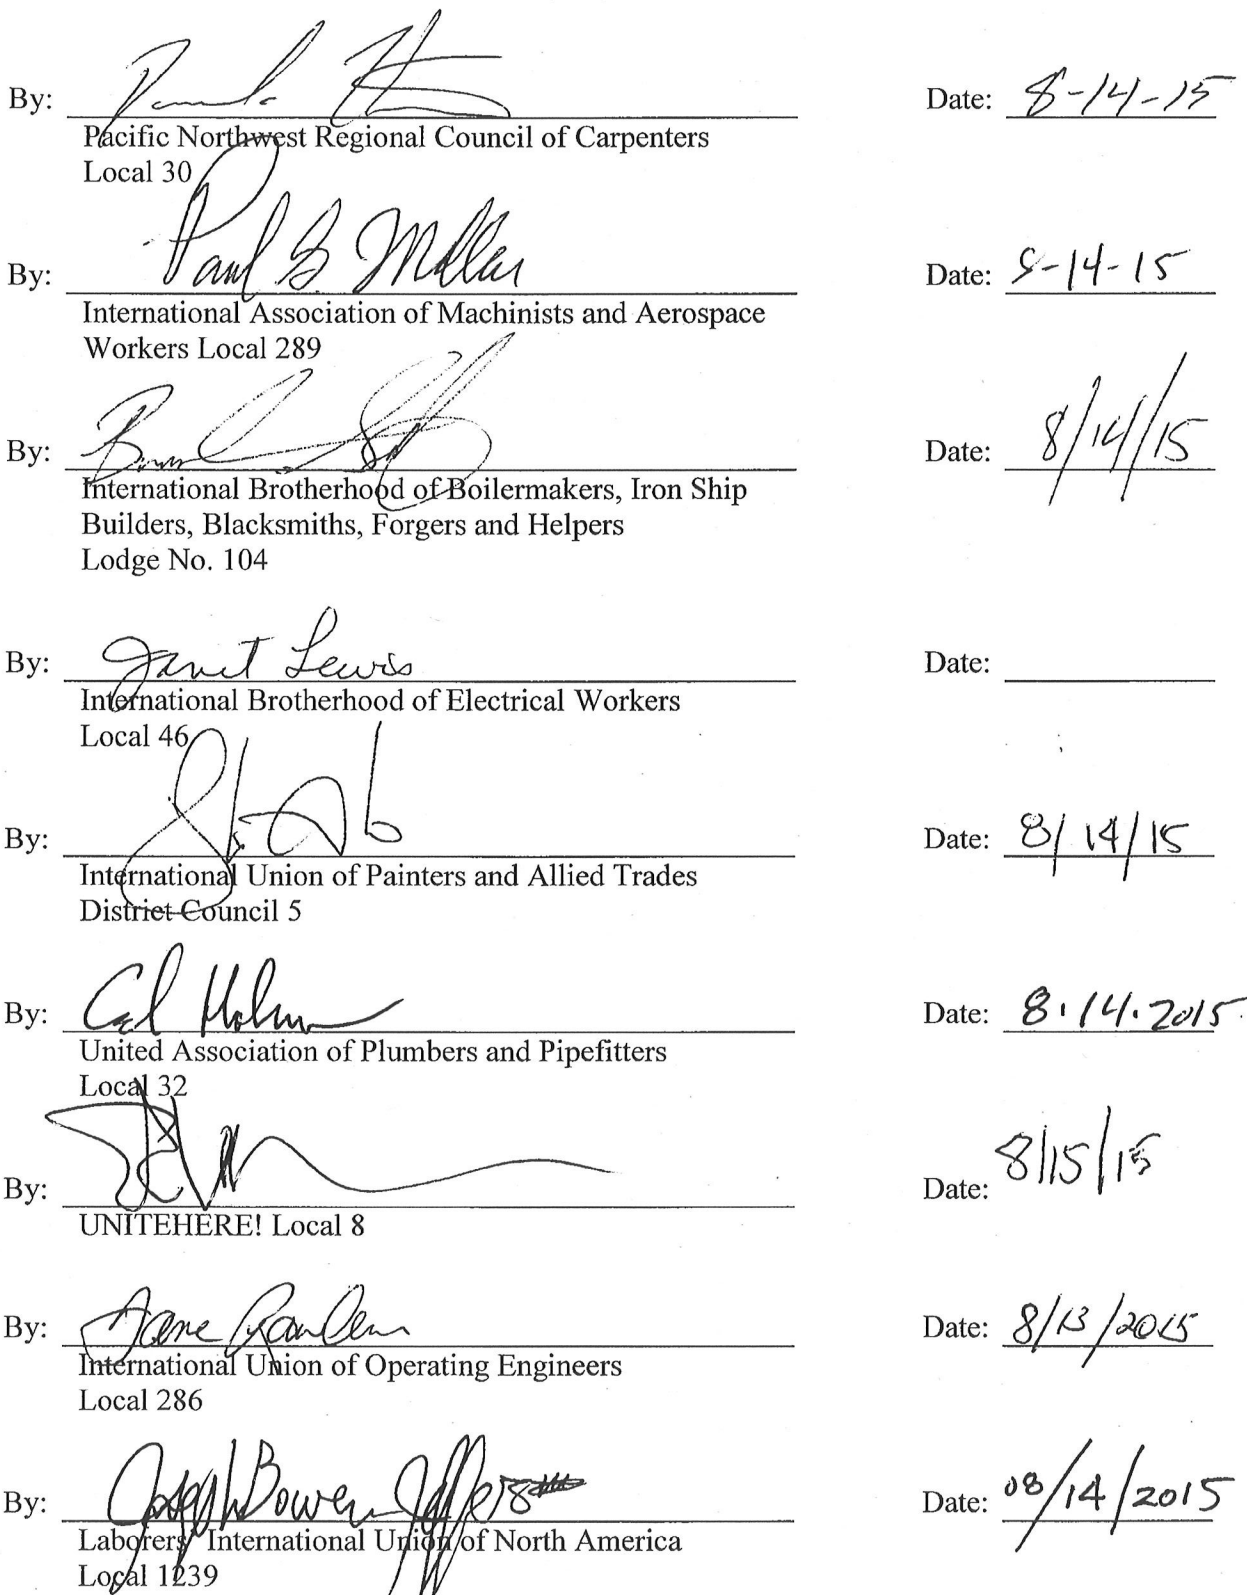 By: Date: 8-14-15
Pacific Northwest Regional Council of Carpenters
Local 30
By: Paul Date: 8-14-15
International Association of Machinists and Aerospace
Workers Local 289
By: Date: 8/14/15
International Brotherhood of Boilermakers, Iron Ship
Builders, Blacksmiths, Forgers and Helpers
Lodge No. 104
By: Janet Lewis Date:
International Brotherhood of Electrical Workers
Local 46
By: Date: 8/14/15
International Union of Painters and Allied Trades
District Council 5
By: Date: 8.14.2015
United Association of Plumbers and Pipefitters
Local 32
By: Date: 8/15/15
UNITEHERE! Local 8
By: Date: 8/13/2015
International Union of Operating Engineers
Local 286
By: Joseph Bowen Date: 08/14/2015
Laborers' International Union of North America
Local 1239